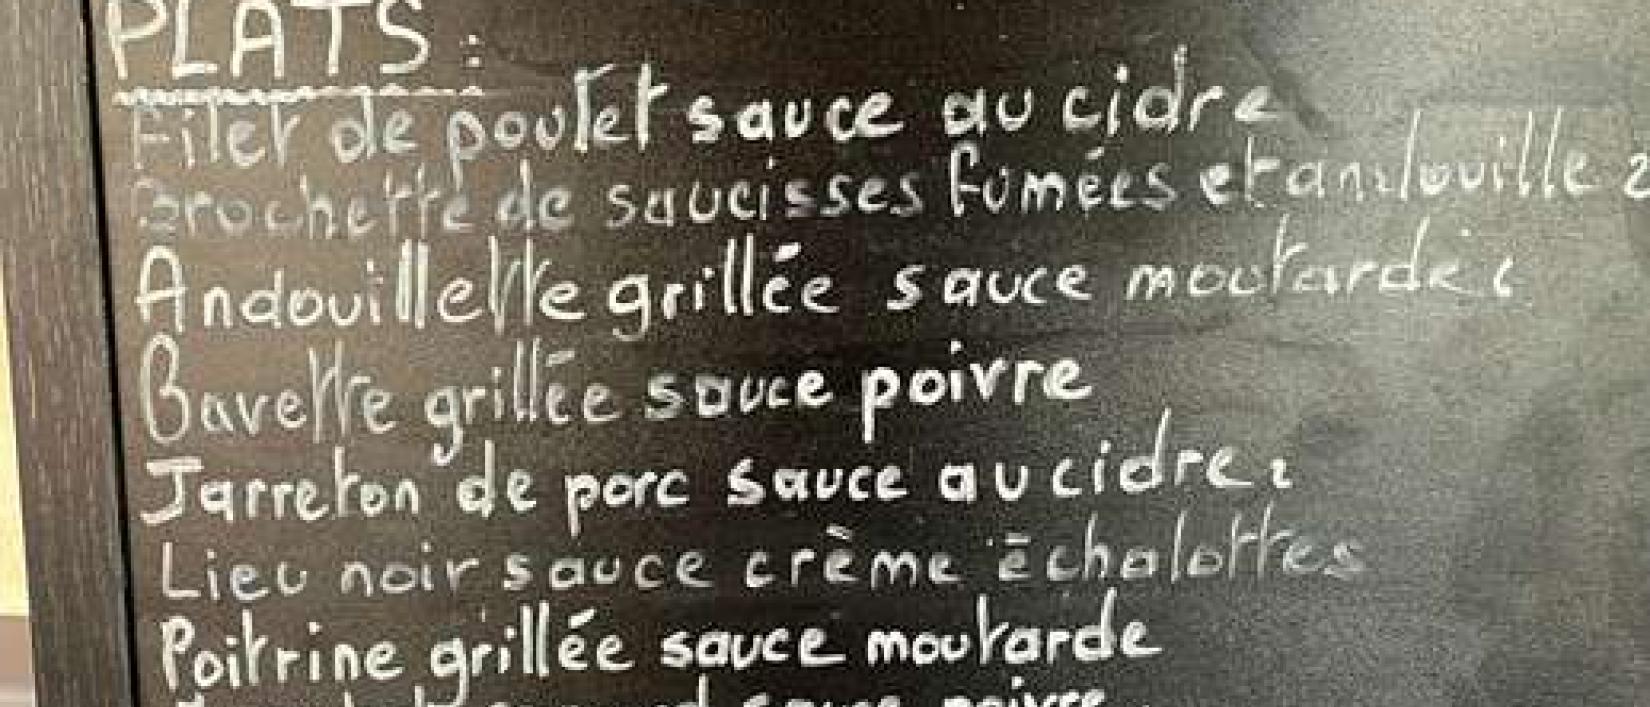 PLATS :
Filet de poulet sauce au cidre
Brochette de saucisses fumées et andouille 2
Andouillette grillée sauce moutarde
Bavette grillée sauce poivre
Jarreton de porc sauce au cidre 2
Lieu noir sauce crème échalottes
Poitrine grillée sauce moutarde
sauce poivre